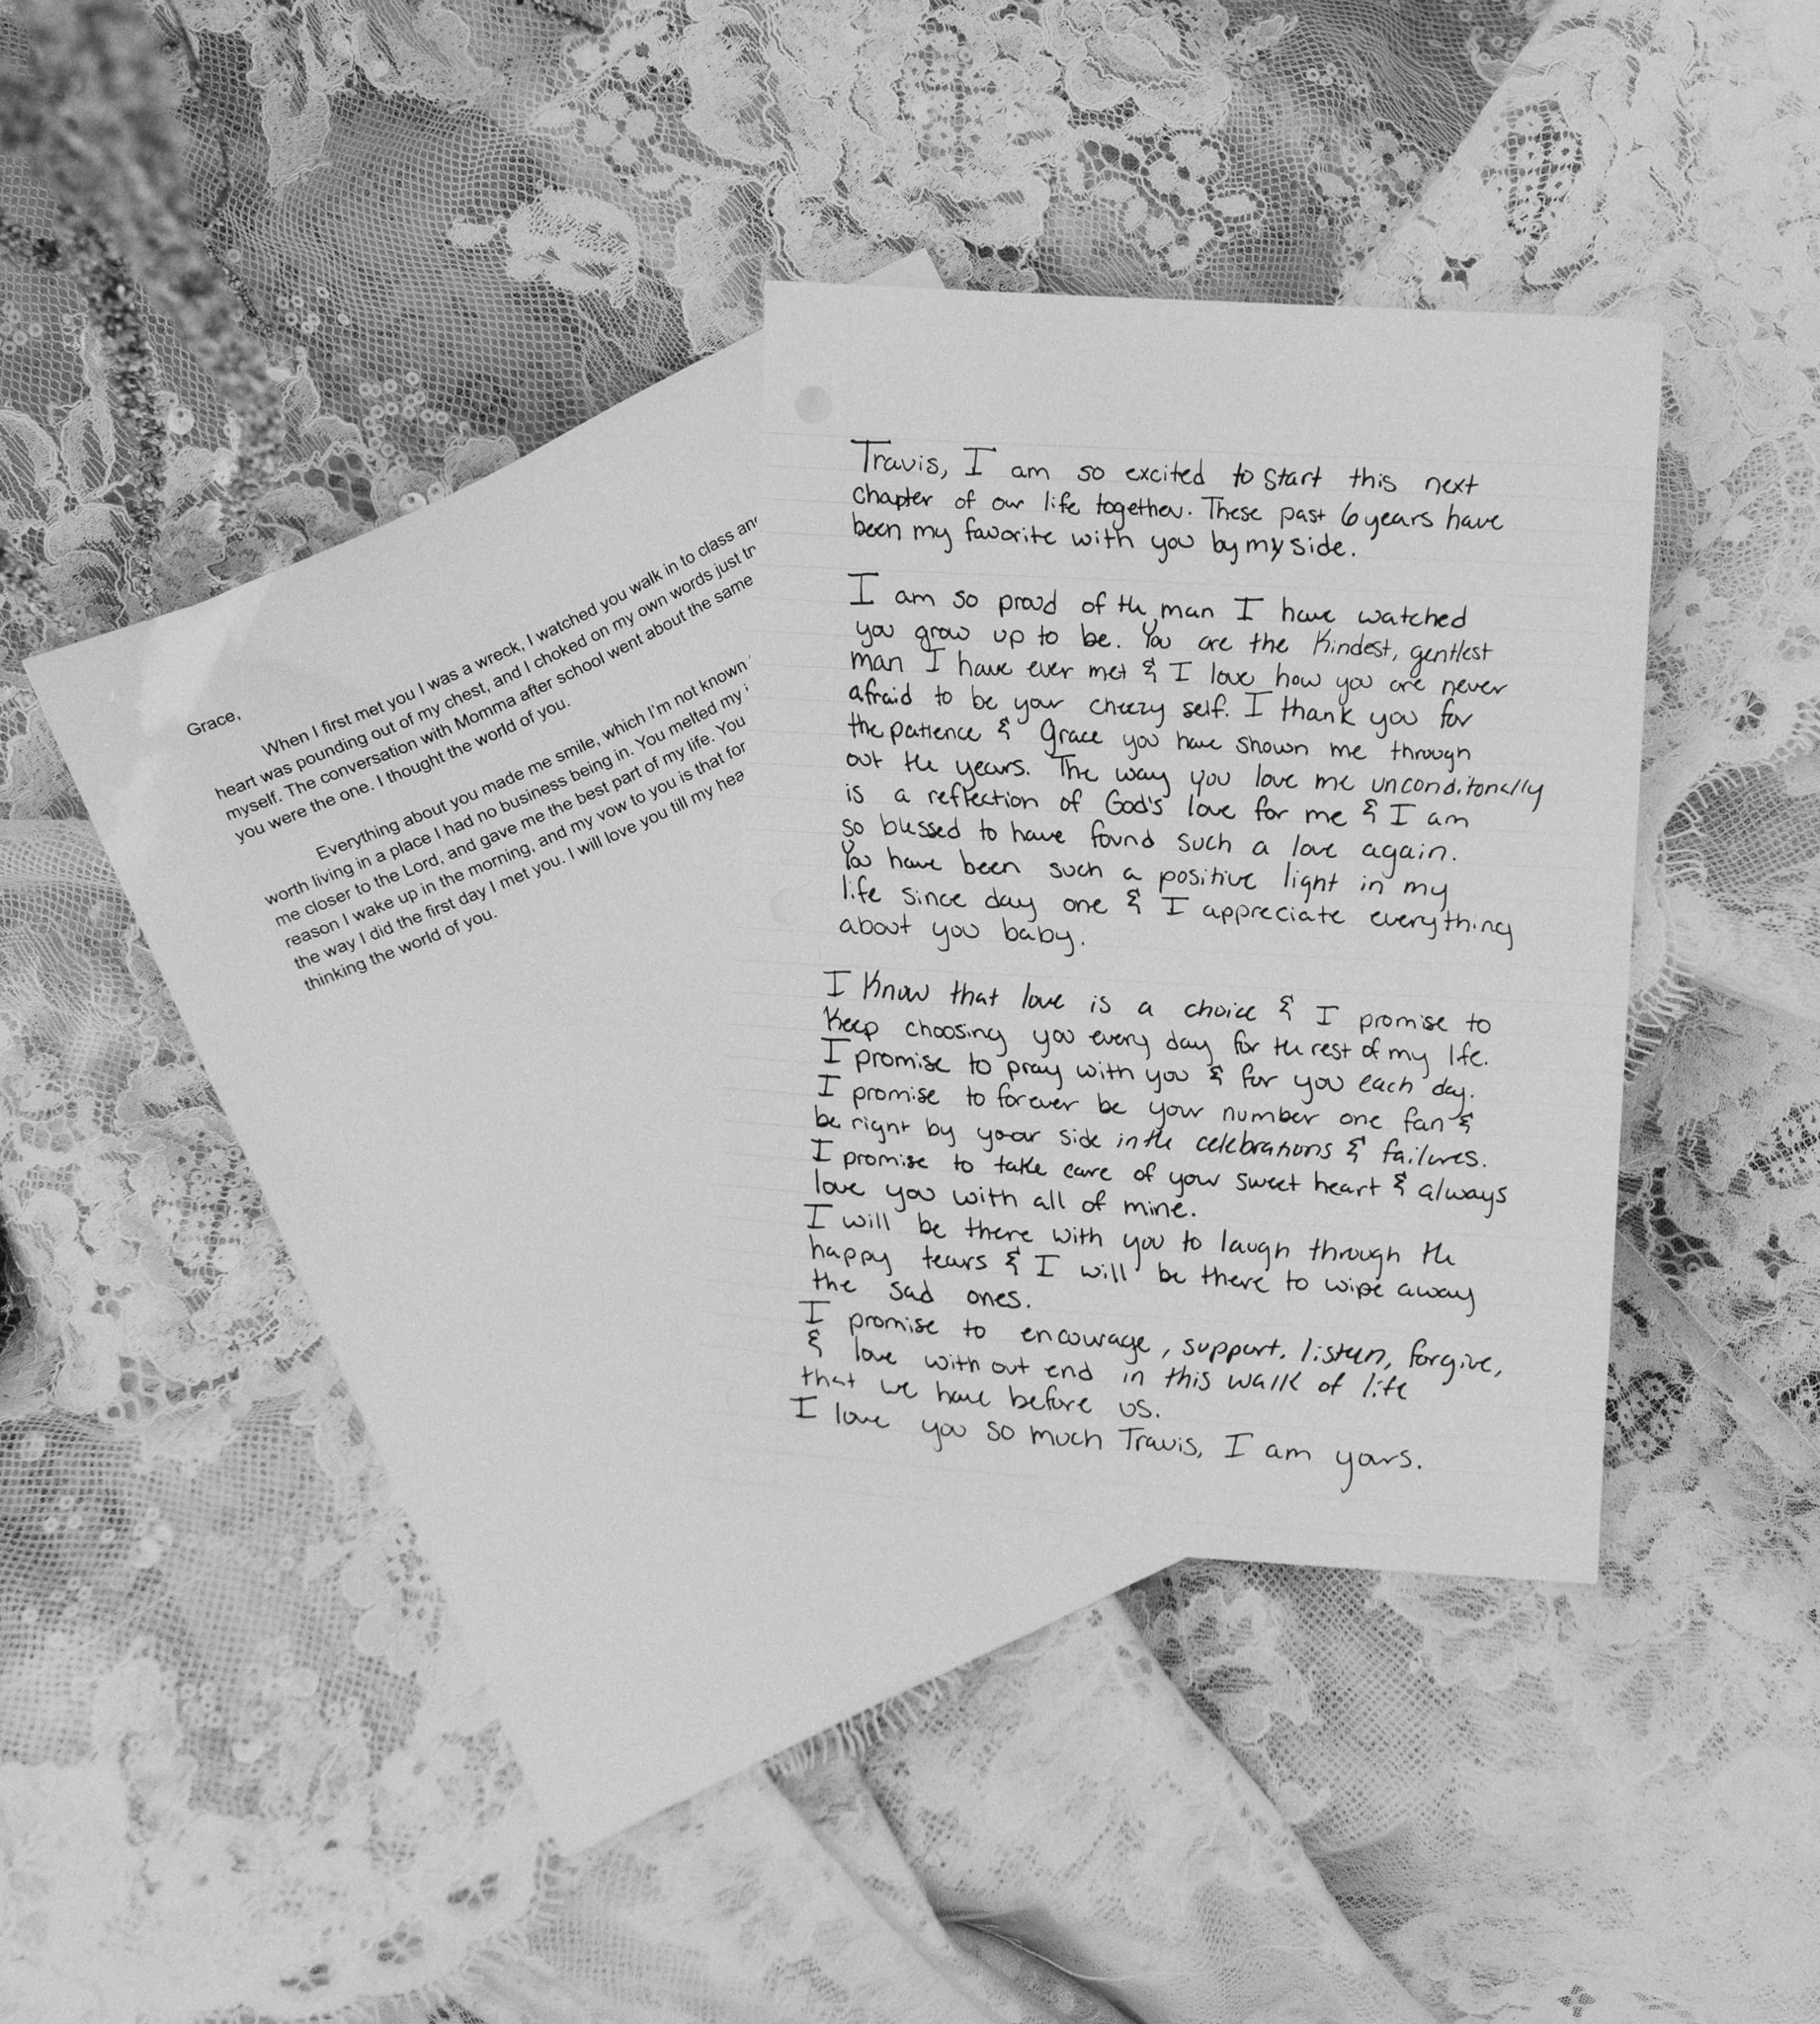 Grace,
When I first met you I was a wreck, I watched you walk in to class and
heart was pounding out of my chest, and I choked on my own words just
myself. The conversation with Momma after school went about the same
you were the one. I thought the world of you.
Everything about you made me smile, which I'm not known
worth living in a place I had no business being in. You melted my
me closer to the Lord, and gave me the best part of my life. You
reason I wake up in the morning, and my vow to you is that for
the way I did the first day I met you. I will love you till my
thinking the world of you.
Travis, I am so excited to start this next
chapter of our life together. These past 6 years have
been my favorite with you by my side.
I am so proud of the man I have watched
you grow up to be. You are the kindest, gentlest
man I have ever met & I love how you are never
afraid to be your cheezy self. I thank you for
the patience & Grace you have shown me through
out the years. The way you love me unconditonally
is a reflection of God's love for me & I am
so blessed to have found such a love again.
You have been such a positive light in my
life since day one & I appreciate everything
about you baby.
I know that love is a choice & I promise to
keep choosing you every day for the rest of my life.
I promise to pray with you & for you each day.
I promise to forever be your number one fan &
be right by your side in the celebrations & failures.
I promise to take care of your sweet heart & always
love you with all of mine.
I will be there with you to laugh through the
happy tears & I will be there to wipe away
the sad ones.
I promise to encourage, support, listen, forgive,
& love with out end in this walk of life
that we have before us.
I love you so much Travis, I am yours.